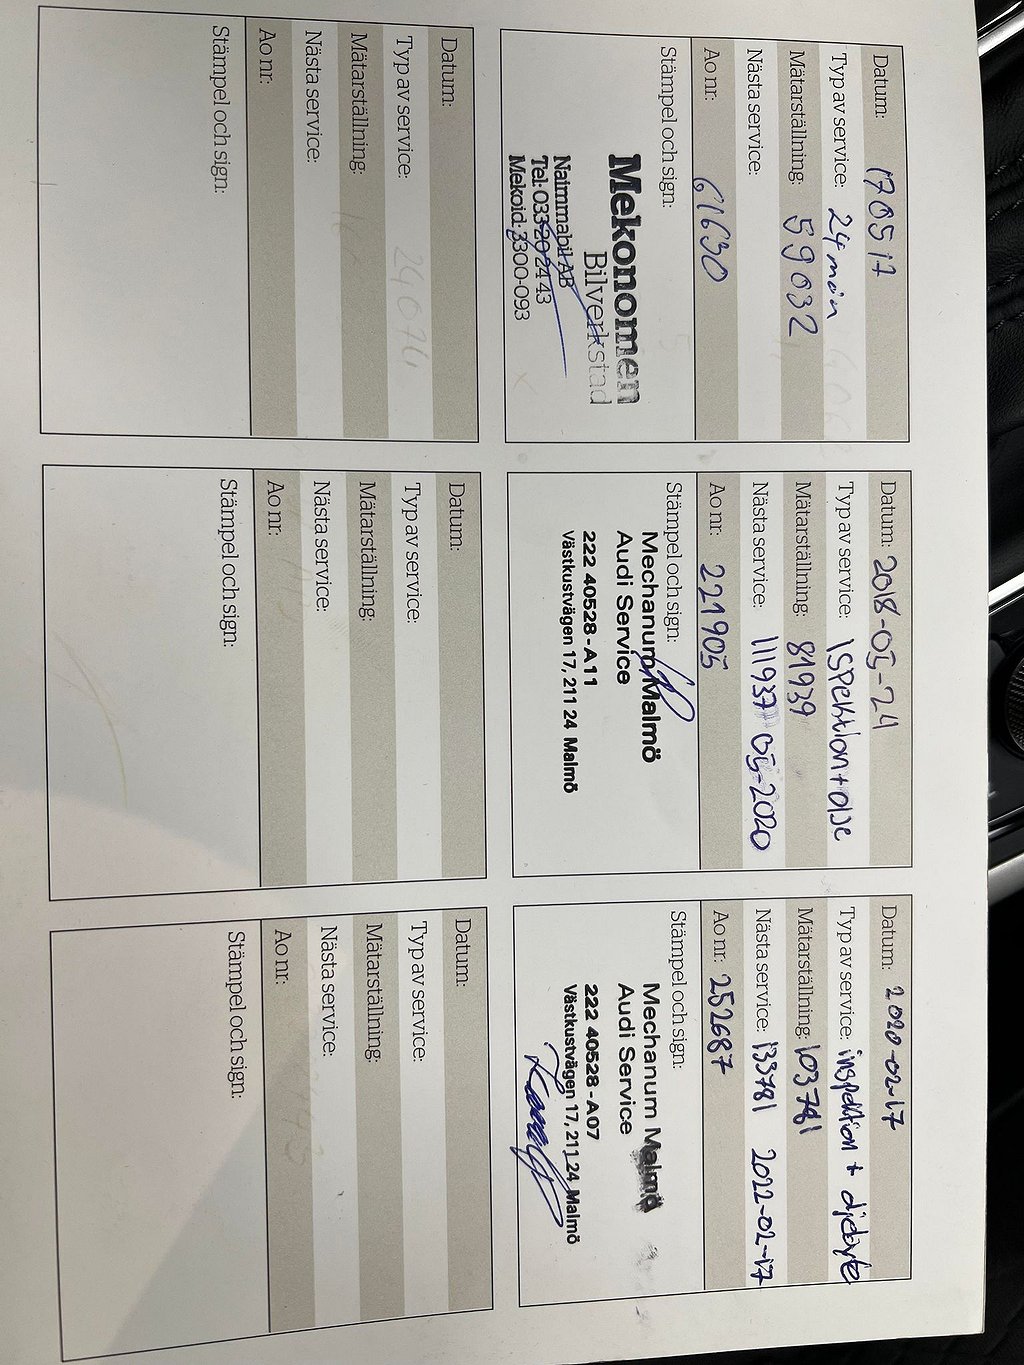 Datum: 170517
Typ av service: 24 mån
Mätarställning: 59032
Nästa service:
Ao nr: 61630
Stämpel och sign:
Mekonomen
Bilverkstad
Naimmabil AB
Tel: 033-20 24 43
Mekoid: 3300-093
Datum: 2018-05-24
Typ av service: ISpektion + olje
Mätarställning: 81939
Nästa service: 111937 05-2020
Ao nr: 221905
Stämpel och sign:
Mechanum Malmö
Audi Service
222 40528-A11
Västkustvägen 17, 211 24 Malmö
Datum: 2020-02-17
Typ av service: inspektion + oljebyte
Mätarställning: 103781
Nästa service: 133781 2022-02-17
Ao nr: 252687
Stämpel och sign:
Mechanum Malmö
Audi Service
222 40528-A07
Västkustvägen 17, 211 24 Malmö
Datum:
Typ av service:
Mätarställning:
Nästa service:
Ao nr:
Stämpel och sign:
Datum:
Typ av service:
Mätarställning:
Nästa service:
Ao nr:
Stämpel och sign:
Datum:
Typ av service:
Mätarställning:
Nästa service:
Ao nr:
Stämpel och sign: